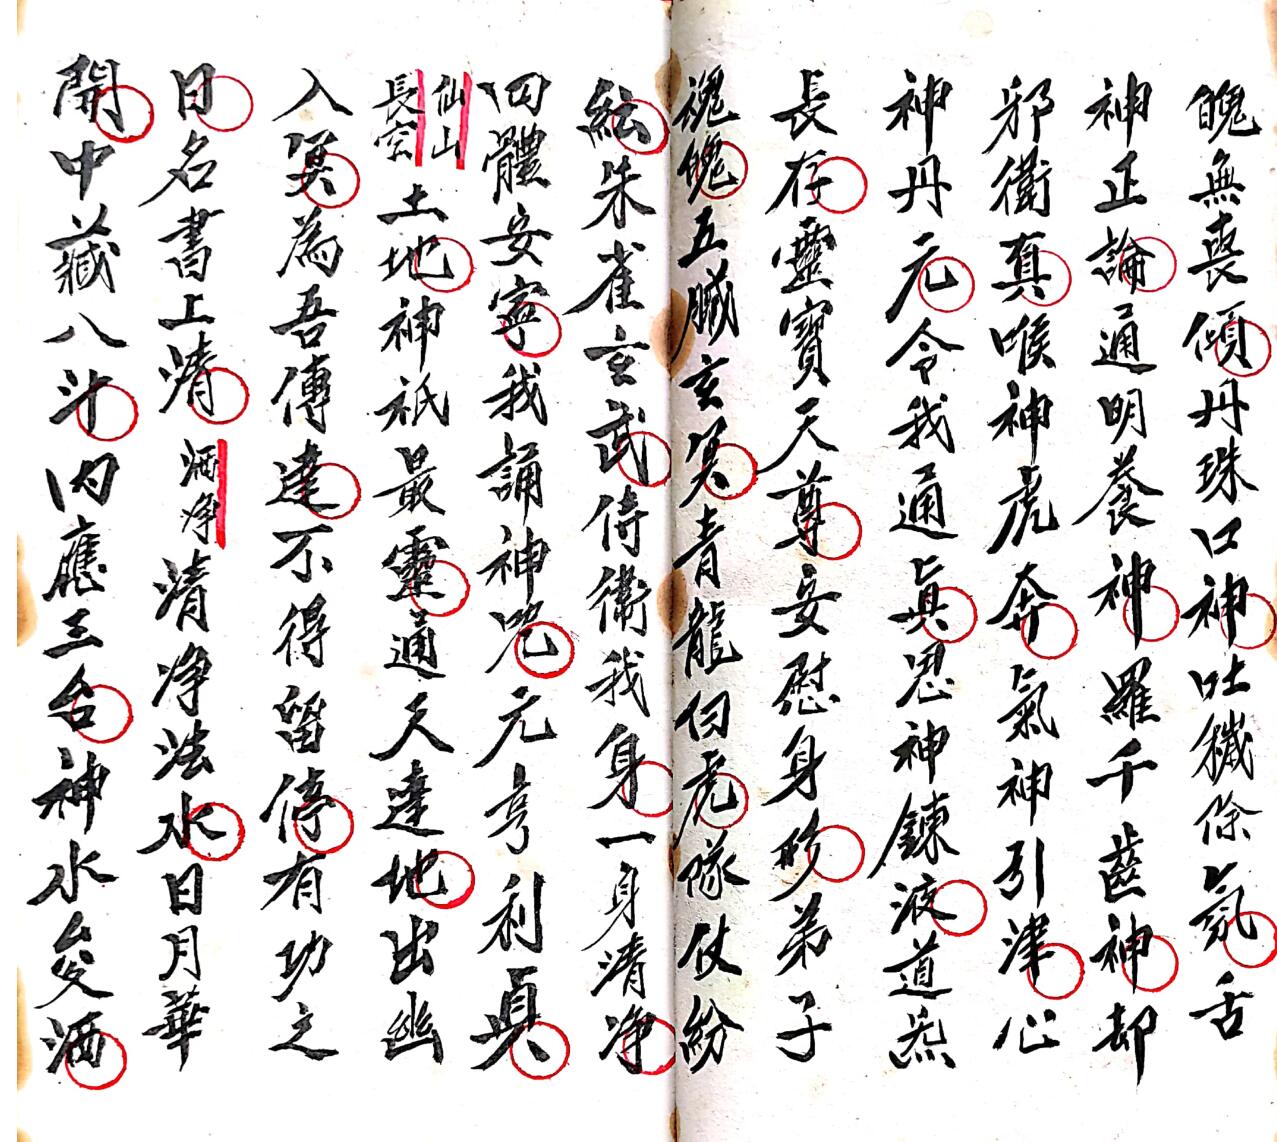 魄無喪傾丹珠口神吐穢除氛舌
神正論通明養神羅千齒神却
邪衛真喉神虎奔氣神引津心
神丹元令我通真思神鍊液道炁
長存靈寶天尊安慰身形弟子
魂魄五臟玄冥青龍白虎隊仗紛
紜朱雀玄武侍衛我身一身清净
四體安寧我誦神咒元亨利貞
仙山
長宫
土地神祇最靈通天達地出幽
入冥為吾傳達不得留停有功之
日名書上清
洒净
清净法水日月華
開中藏八斗内應三台神水矣洒